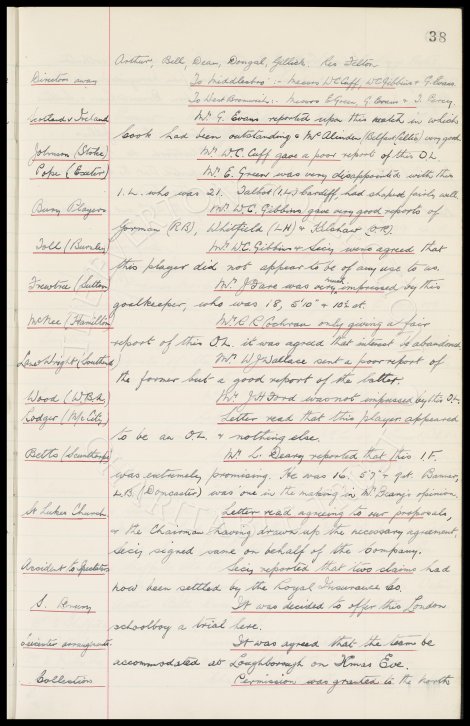 38
Arthur, Bell, Dean, Dougal, Gillick. Res Felton
Directors away To Middlesbro' :- Messrs W.C. Cuff, W.C. Gibbins & G. Evans.
To West Bromwich :- Messrs E. Green, G. Evans & T. Percy.
Scotland v Ireland Mr. G. Evans reported upon this match in which
Cook had been outstanding & McAlinden (Belfast Celtic) very good.
Johnson (Stoke) Mr. W.C. Cuff gave a poor report of this O.L.
Pope (Exeter) Mr. E. Green was very disappointed with this
I.L. who was 21. Talbot (I.L.) Cardiff, had shaped fairly well.
Bury Players Mr. W.C. Gibbins gave very good reports of
Gorman (R.B.), Whitfield (L.H.) & Kilshaw
Toll (Burnley) Mr. W.C. Gibbins & Secy were agreed that
this player did not appear to be of any use to us.
(Sutton Mr. J. Sare was very much impressed by this
goalkeeper, who was 18, 5'10" & 10½ st.
McNee (Hamilton Mr. R.R. Cochran only giving a fair
report of this O.L. it was agreed that interest is abandoned.
Lane & Wright (Southend) Mr. W.J. Wallace sent a poor report of
the former but a good report of the latter.
Wood (W.B.A. Mr. J.H. Ford was not impressed by this O.L.
Rodger (M/c City) Letter read that this player appeared
to be an O.L. & nothing else.
Betts (Scunthorpe) Mr. L. Deary reported that this I.F.
was extremely promising. He was 16. 5'7" & 9 st.
L.B. (Doncaster) was one in the making in Mr. opinion.
St Lukes Church Letter read agreeing to our proposals,
& the Chairman having drawn up the necessary agreement,
Secy signed same on behalf of the Company.
Accident to Spectators Secy reported that two claims had
now been settled by the Royal Insurance Co.
S. Drury It was decided to offer this London
schoolboy a trial here.
Leicester arrangements It was agreed that the team be
accommodated at Loughborough on Xmas Eve.
Collection Permission was granted to the North